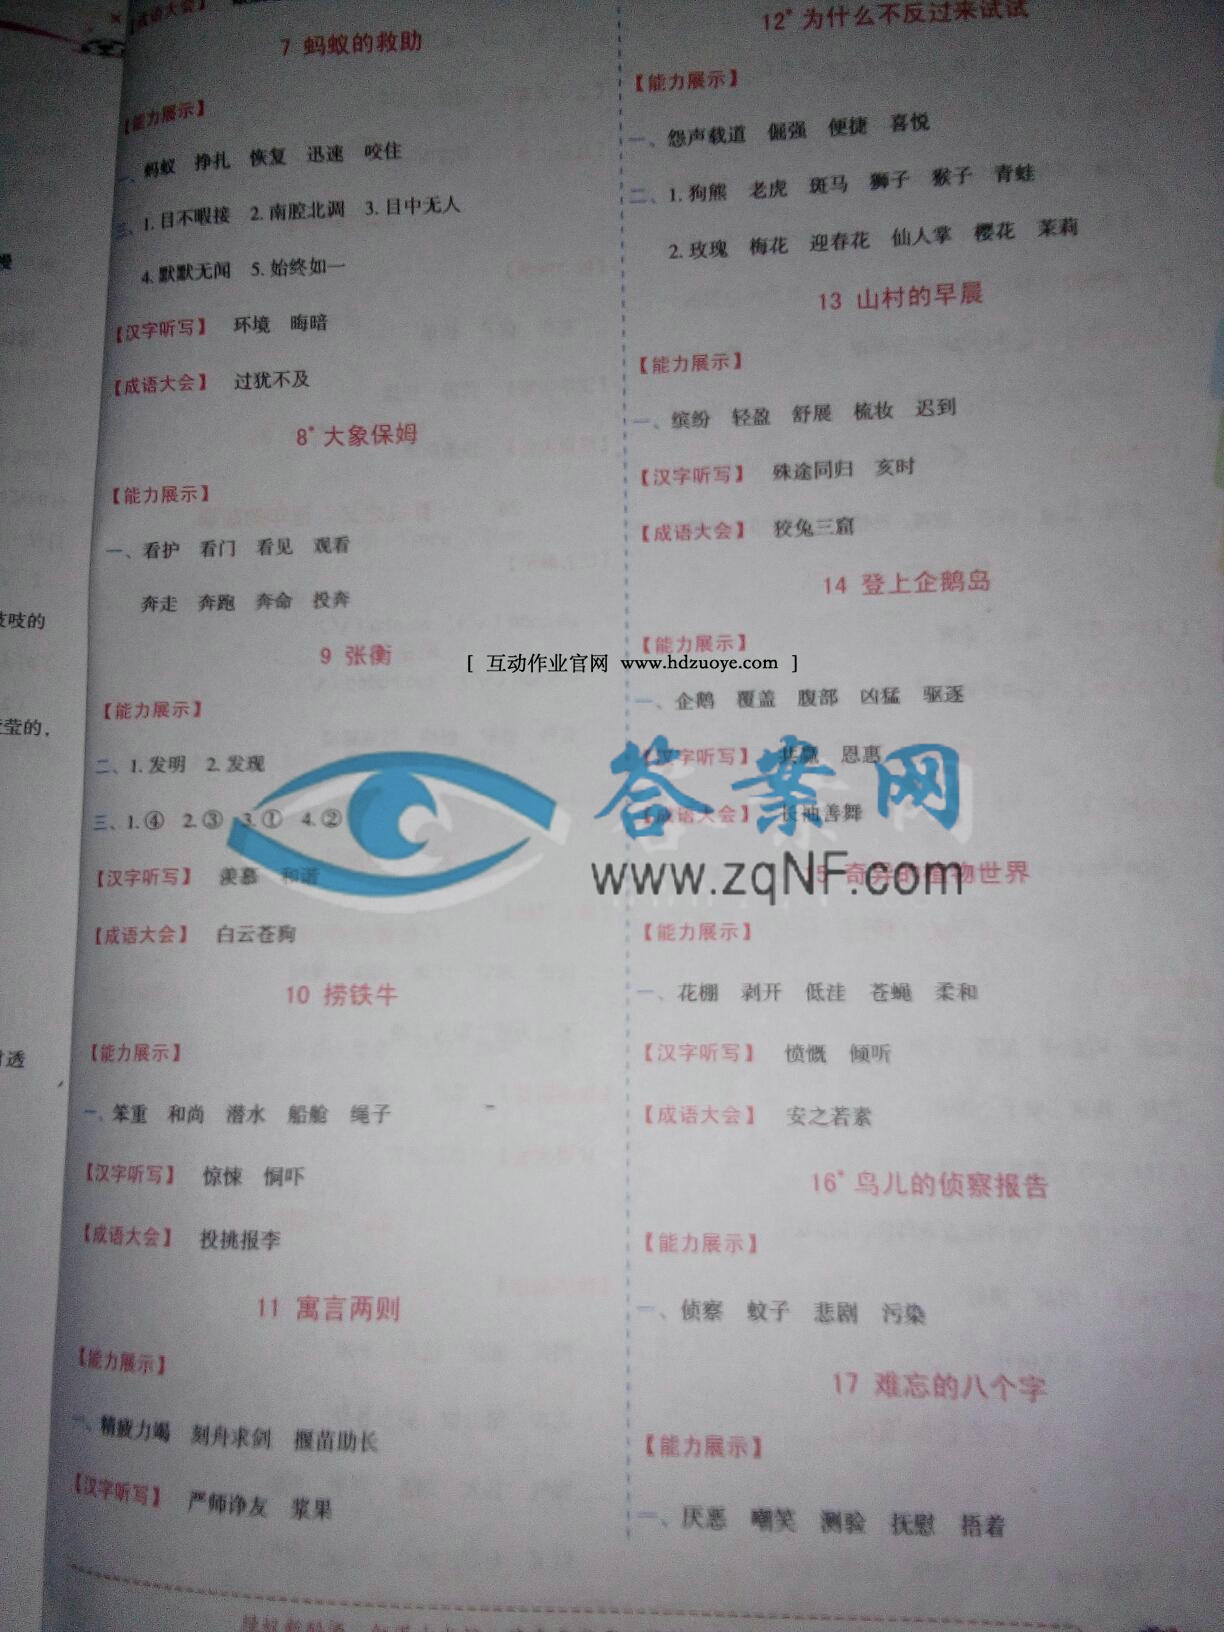 【成语大会】
7 蚂蚁的救助
【能力展示】
一、蚂蚁 挣扎 恢复 迅速 咬住
三、1.目不暇接 2.南腔北调 3.目中无人
4.默默无闻 5.始终如一
【汉字听写】 环境 晦暗
【成语大会】 过犹不及
8* 大象保姆
【能力展示】
一、看护 看门 看见 观看
奔走 奔跑 奔命 投奔
9 张衡
【能力展示】
二、1.发明 2.发现
三、1.④ 2.③ 3.① 4.②
【汉字听写】 羡慕 和谐
【成语大会】 白云苍狗
10 捞铁牛
【能力展示】
一、笨重 和尚 潜水 船舱 绳子
【汉字听写】 惊悚 恫吓
【成语大会】 投挑报李
11 寓言两则
【能力展示】
一、精疲力竭 刻舟求剑 揠苗助长
【汉字听写】 严师诤友 浆果
12* 为什么不反过来试试
【能力展示】
一、怨声载道 倔强 便捷 喜悦
二、1.狗熊 老虎 斑马 狮子 猴子 青蛙
2.玫瑰 梅花 迎春花 仙人掌 樱花 茉莉
13 山村的早晨
【能力展示】
一、缤纷 轻盈 舒展 梳妆 迟到
【汉字听写】 殊途同归 亥时
【成语大会】 狡兔三窟
14 登上企鹅岛
【能力展示】
一、企鹅 覆盖 腹部 凶猛 驱逐
【汉字听写】 共赢 恩惠
【成语大会】 长袖善舞
15 奇异的植物世界
【能力展示】
一、花棚 剥开 低洼 苍蝇 柔和
【汉字听写】 愤慨 倾听
【成语大会】 安之若素
16* 鸟儿的侦察报告
【能力展示】
一、侦察 蚊子 悲剧 污染
17 难忘的八个字
【能力展示】
一、厌恶 嘲笑 测验 抚慰 捂着
[ 互动作业官网 www.hdzuoye.com ]
答案网
www.zqNF.com
吱吱的
莹的，
透